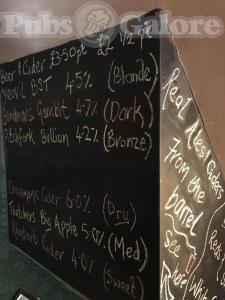 Pubs Galore
Beer & Cider £3·50pt £2 1/2 pt
Yeovil BST 4·5% (Blonde)
Blindmans Gambit 4·7% (Dark)
Pitchfork Bullion 4·2% (Bronze)
Crossmans Cider 6·0% (Dry)
Thatchers Big Apple 5·0% (Med)
Rhubarb Cider 4·0% (Sweet)
Real
Ales & Ciders
From the
barrel
see
here